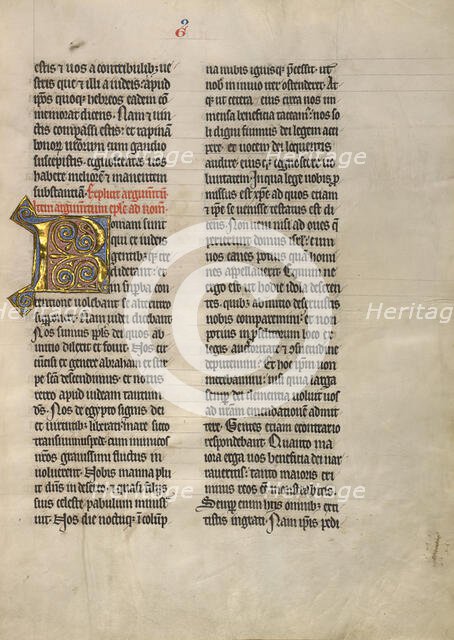 86
estis et uos a contribulibꝫ ue
stris que et illi a iudeis. Apud
ip̄os quoqꝫ hebreos eadem cō
memorat dicens. Nam et uin
ctis compassi estis: et rapinam
bonoꝝ uestrorum cum gaudio
suscepistis. cognoscentes uos
habere meliorē et manentem
substantiam. Explicit argum̄tū
Item argum̄tum ep̄le ad rom̄.
Romani sunt
qui ex iudeis
gentilibꝫ cre
diderunt. hi
superba con
tentione volebant se alterutꝝ
superponere. Nam iudei dicebant
Nos sumus pp̄ls dei quos ab
initio dilexit et fouit. Nos cir
cumcisi ex genere abraham ex stir
pe sancta descendimus. et notus
retro apud iudeam tantum
ds̄. Nos de egypto signis dei
et uirtutibꝫ liberati: mare sicco
transiuimus pede. cum inimicos
nr̄os grauissimi fluctus in
uoluerent. Nobis manna plu
it dn̄s in deserto. et quasi filijs
suis celeste pabulum minist
rauit. Nos die noctuqꝫ in colūp
na nubis ignisqꝫ p̄cessit. ut
nobis in inuio iter ostenderet. Atqꝫ
ut cetera eius circa nos im
mensa beneficia taceam: nos so
li digni fuimus dei legem acci
pere. et uocem dei loquentis
audire. eiusqꝫ cognoscere uo
luntatem. In qua lege nobis ꝓ
missus est xp̄c. ad quos etiam
et ip̄e se uenisse testatus est di
cens. Non ueni nisi ad oues que
perierunt domus isr̄l. cum
uos canes potius quam homi
nes appellauerit. Equum ne
ergo est ut hodie idola deser
entes. quibꝫ ab initio deseruistis
nobis comparemini. et non
potius in proselitorum locum ex
legis auctoritate et cōsuetudine
deputemini. Et hoc ip̄m non
merebamini: nisi quia larga
semper dei clementia uoluit uos
ad nr̄am emendationem admit
tere. Gentes etiam econtrario
respondebant. Quanto ma
iora erga uos beneficia dei nar
raueritis: tanto maioris cri
minis reos esse monstrabitis.
Semper enim hiis omnibꝫ exti
tistis ingrati. Nam ip̄is pedi